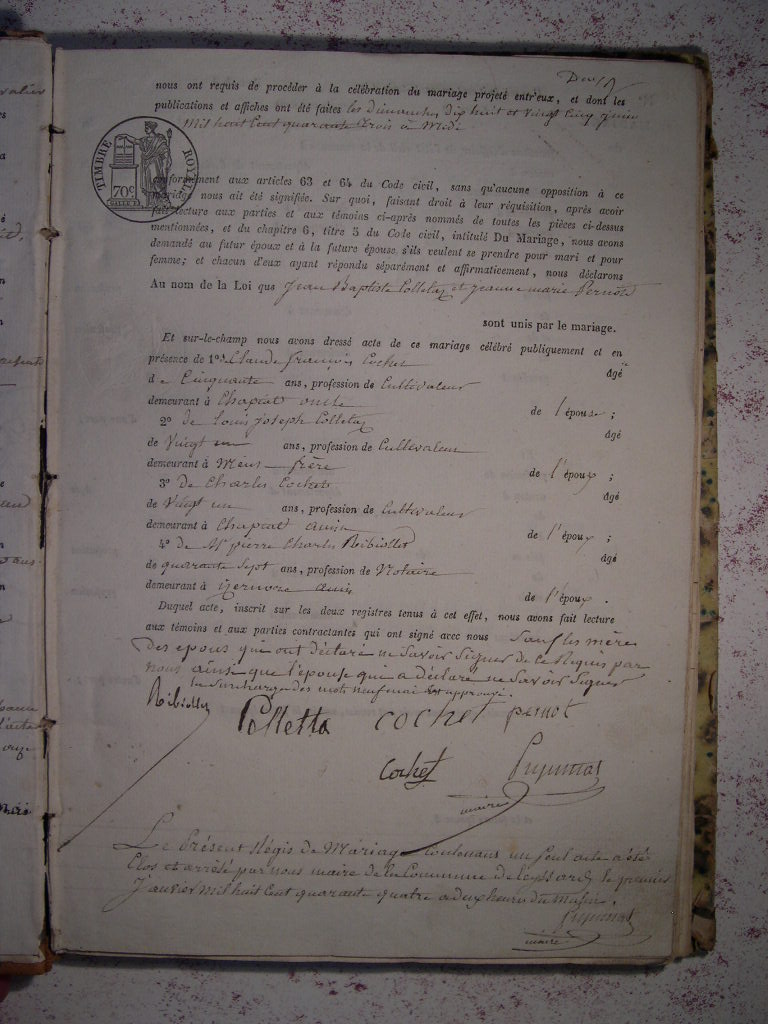 Deux
nous ont requis de procéder à la célébration du mariage projeté entr'eux, et dont les
publications et affiches ont été faites les Dimanches Dix huit et Vingt Cinq juin
Mil huit Cent quarante trois à Midi
TIMBRE ROYAL
70c
conformément aux articles 63 et 64 du Code civil, sans qu'aucune opposition à ce
mariage nous ait été signifiée. Sur quoi, faisant droit à leur réquisition, après avoir
fait lecture aux parties et aux témoins ci-après nommés de toutes les pièces ci-dessus
mentionnées, et du chapitre 6, titre 5 du Code civil, intitulé Du Mariage, nous avons
demandé au futur époux et à la future épouse s'ils veulent se prendre pour mari et pour
femme; et chacun d'eux ayant répondu séparément et affirmativement, nous déclarons
Au nom de la Loi que Jean Baptiste Colletaz et jeanne marie Pernod
sont unis par le mariage.
Et sur-le-champ nous avons dressé acte de ce mariage célébré publiquement et en
présence de 1o. Claude françois Cochet âgé
de Cinquante ans, profession de Cultivateur
demeurant à Chapiat oncle de l'épouse ;
2o de Louis joseph Colletaz âgé
de Vingt un ans, profession de Cultivateur
demeurant à frère de l'époux ;
3o de Charles Cochet âgé
de Vingt un ans, profession de Cultivateur
demeurant à Chapiat amis de l'époux ;
4o de Mr pierre Charles Ribiollet âgé
de quarante Sept ans, profession de Notaire
demeurant à amis de l'époux .
Duquel acte, inscrit sur les deux registres tenus à cet effet, nous avons fait lecture
aux témoins et aux parties contractantes qui ont signé avec nous Sauf les mères
Des epoux qui ont déclaré ne Savoir Signer de ce Requis par
nous ainsi que l'épouse qui a déclaré ne Savoir Signer
la Surcharge des mots neuf mai est approuvé.
Ribiollet Colletta cochet pernot
Cochet
maire
Le Présent Régis de Mariage Contenant un Seul acte a été
Clos et arrêté par nous maire de la Commune de leyssard le premier
Janvier Mil huit Cent quarante quatre a Dix heures du Matin.
maire